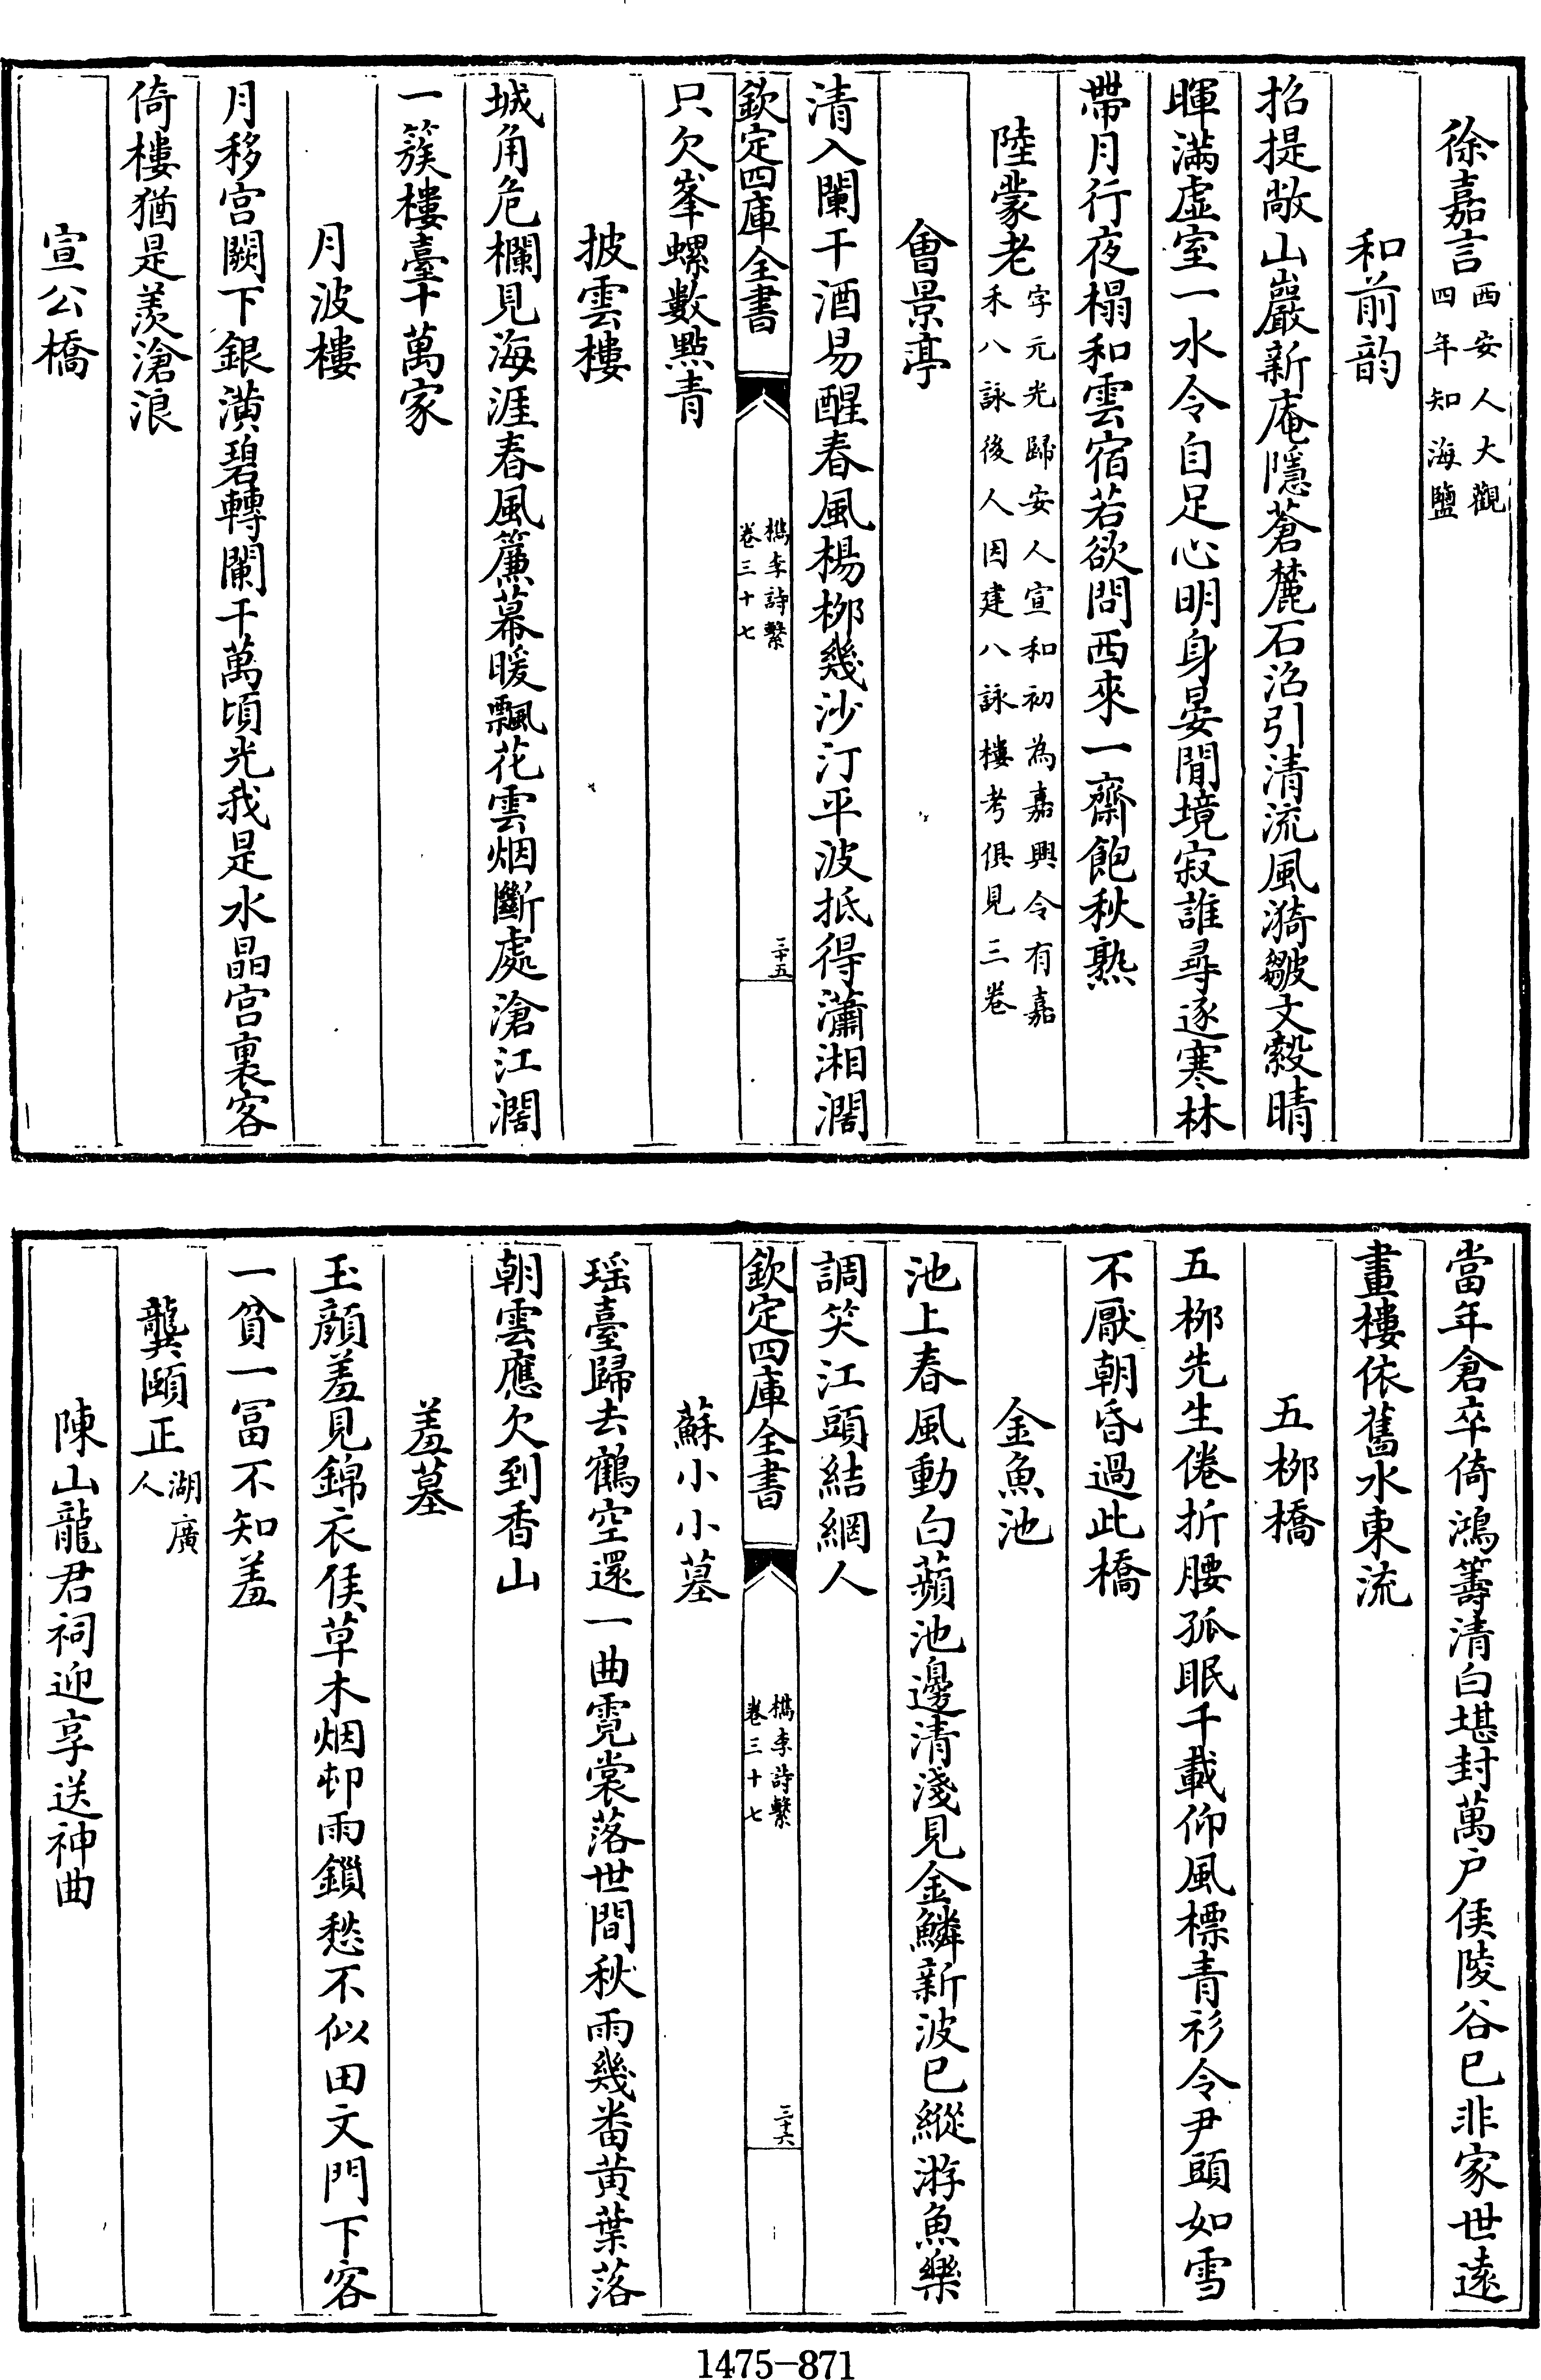 徐嘉言西安人大觀四年知海鹽
和前韵
招提敞山巖新庵隱蒼麓石沼引清流風漪皺文縠晴
暉滿虛室一水令自足心明身晏閒境寂誰尋逐寒林
帶月行夜榻和雲宿若欲問西來一齋飽秋熟
陸蒙老字元光歸安人宣和初為嘉興令有嘉禾八詠後人因建八詠樓考俱見三卷
會景亭
清入闌干酒易醒春風楊柳幾沙汀平波抵得瀟湘濶
欽定四庫全書 檇李詩繫卷三十七 三十五
只欠峯螺數點青
披雲樓
城角危欄見海涯春風簾幕暖飄花雲烟斷處滄江濶
一簇樓臺十萬家
月波樓
月移宮闕下銀潢碧轉闌干萬頃光我是水晶宮裏客
倚樓猶是羨滄浪
宣公橋
當年倉卒倚鴻籌清白堪封萬户侯陵谷已非家世遠
畫樓依舊水東流
五柳橋
五柳先生倦折腰孤眠千載仰風標青衫令尹頭如雪
不厭朝昏過此橋
金魚池
池上春風動白蘋池邊清淺見金鱗新波已縱游魚樂
調笑江頭結網人
欽定四庫全書 檇李詩繫卷三十七 三十六
蘇小小墓
瑶臺歸去鶴空還一曲霓裳落世間秋雨幾番黄葉落
朝雲應欠到香山
羞墓
玉顔羞見錦衣侯草木烟邨雨鎖愁不似田文門下客
一貧一富不知羞
龔頤正湖廣人
陳山龍君祠迎享送神曲
1475-871